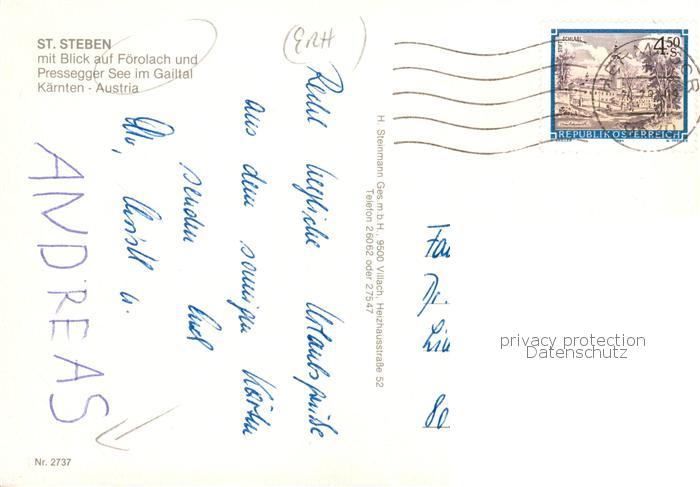 ST. STEBEN
mit Blick auf Förolach und
Pressegger See im Gailtal
Kärnten - Austria
Recht herzliche Urlaubsgrüße
aus dem sonnigen Kärnten
senden Euch
Christl u.
ANDREAS
Nr. 2737
H. Steinmann Ges.m.b.H., 9500 Villach, Heizhausstraße 52
Telefon 26062 oder 27547
STIFT SCHLÄGL
4.50
S
REPUBLIK ÖSTERREICH
Dr.
80
privacy protection
Datenschutz